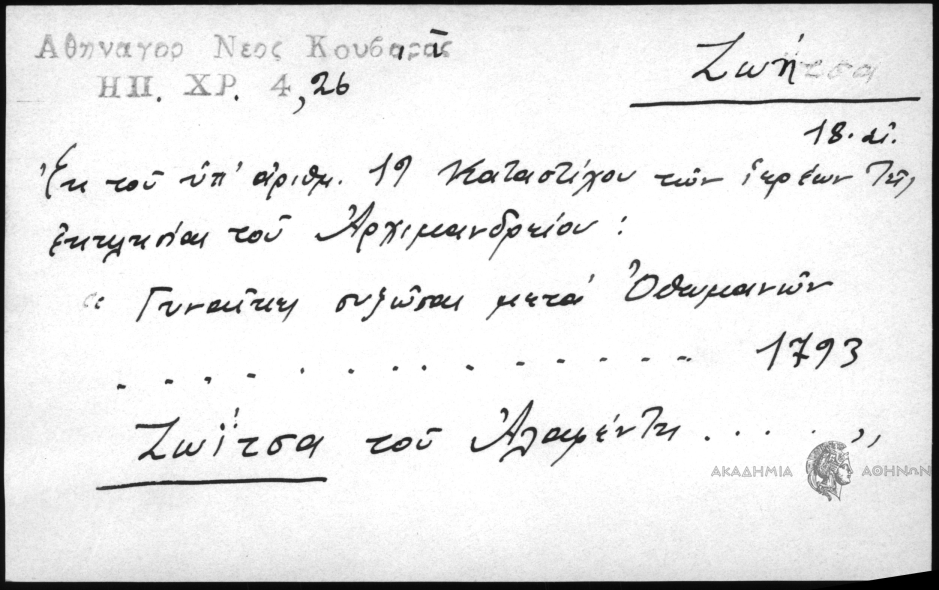 Αθηναγορ Νεος Κουβαρᾶς
ΗΠ. ΧΡ. 4, 26
Ζωή τσα
18. αἰ.
Ἐκ τοῦ ὑπ' ἀριθμ. 19 Καταστίχου τῶν ἱερέων τῆς
ἐκκλησίας τοῦ Ἀρχιμανδρείου:
“ Γυναῖκες συζῶσαι μετά Ὀθωμανῶν
. . . . . . . . . . . . . . 1793
Ζωΐτσα τοῦ . . . . ,,
ΑΚΑΔΗΜΙΑ ΑΘΗΝΩΝ